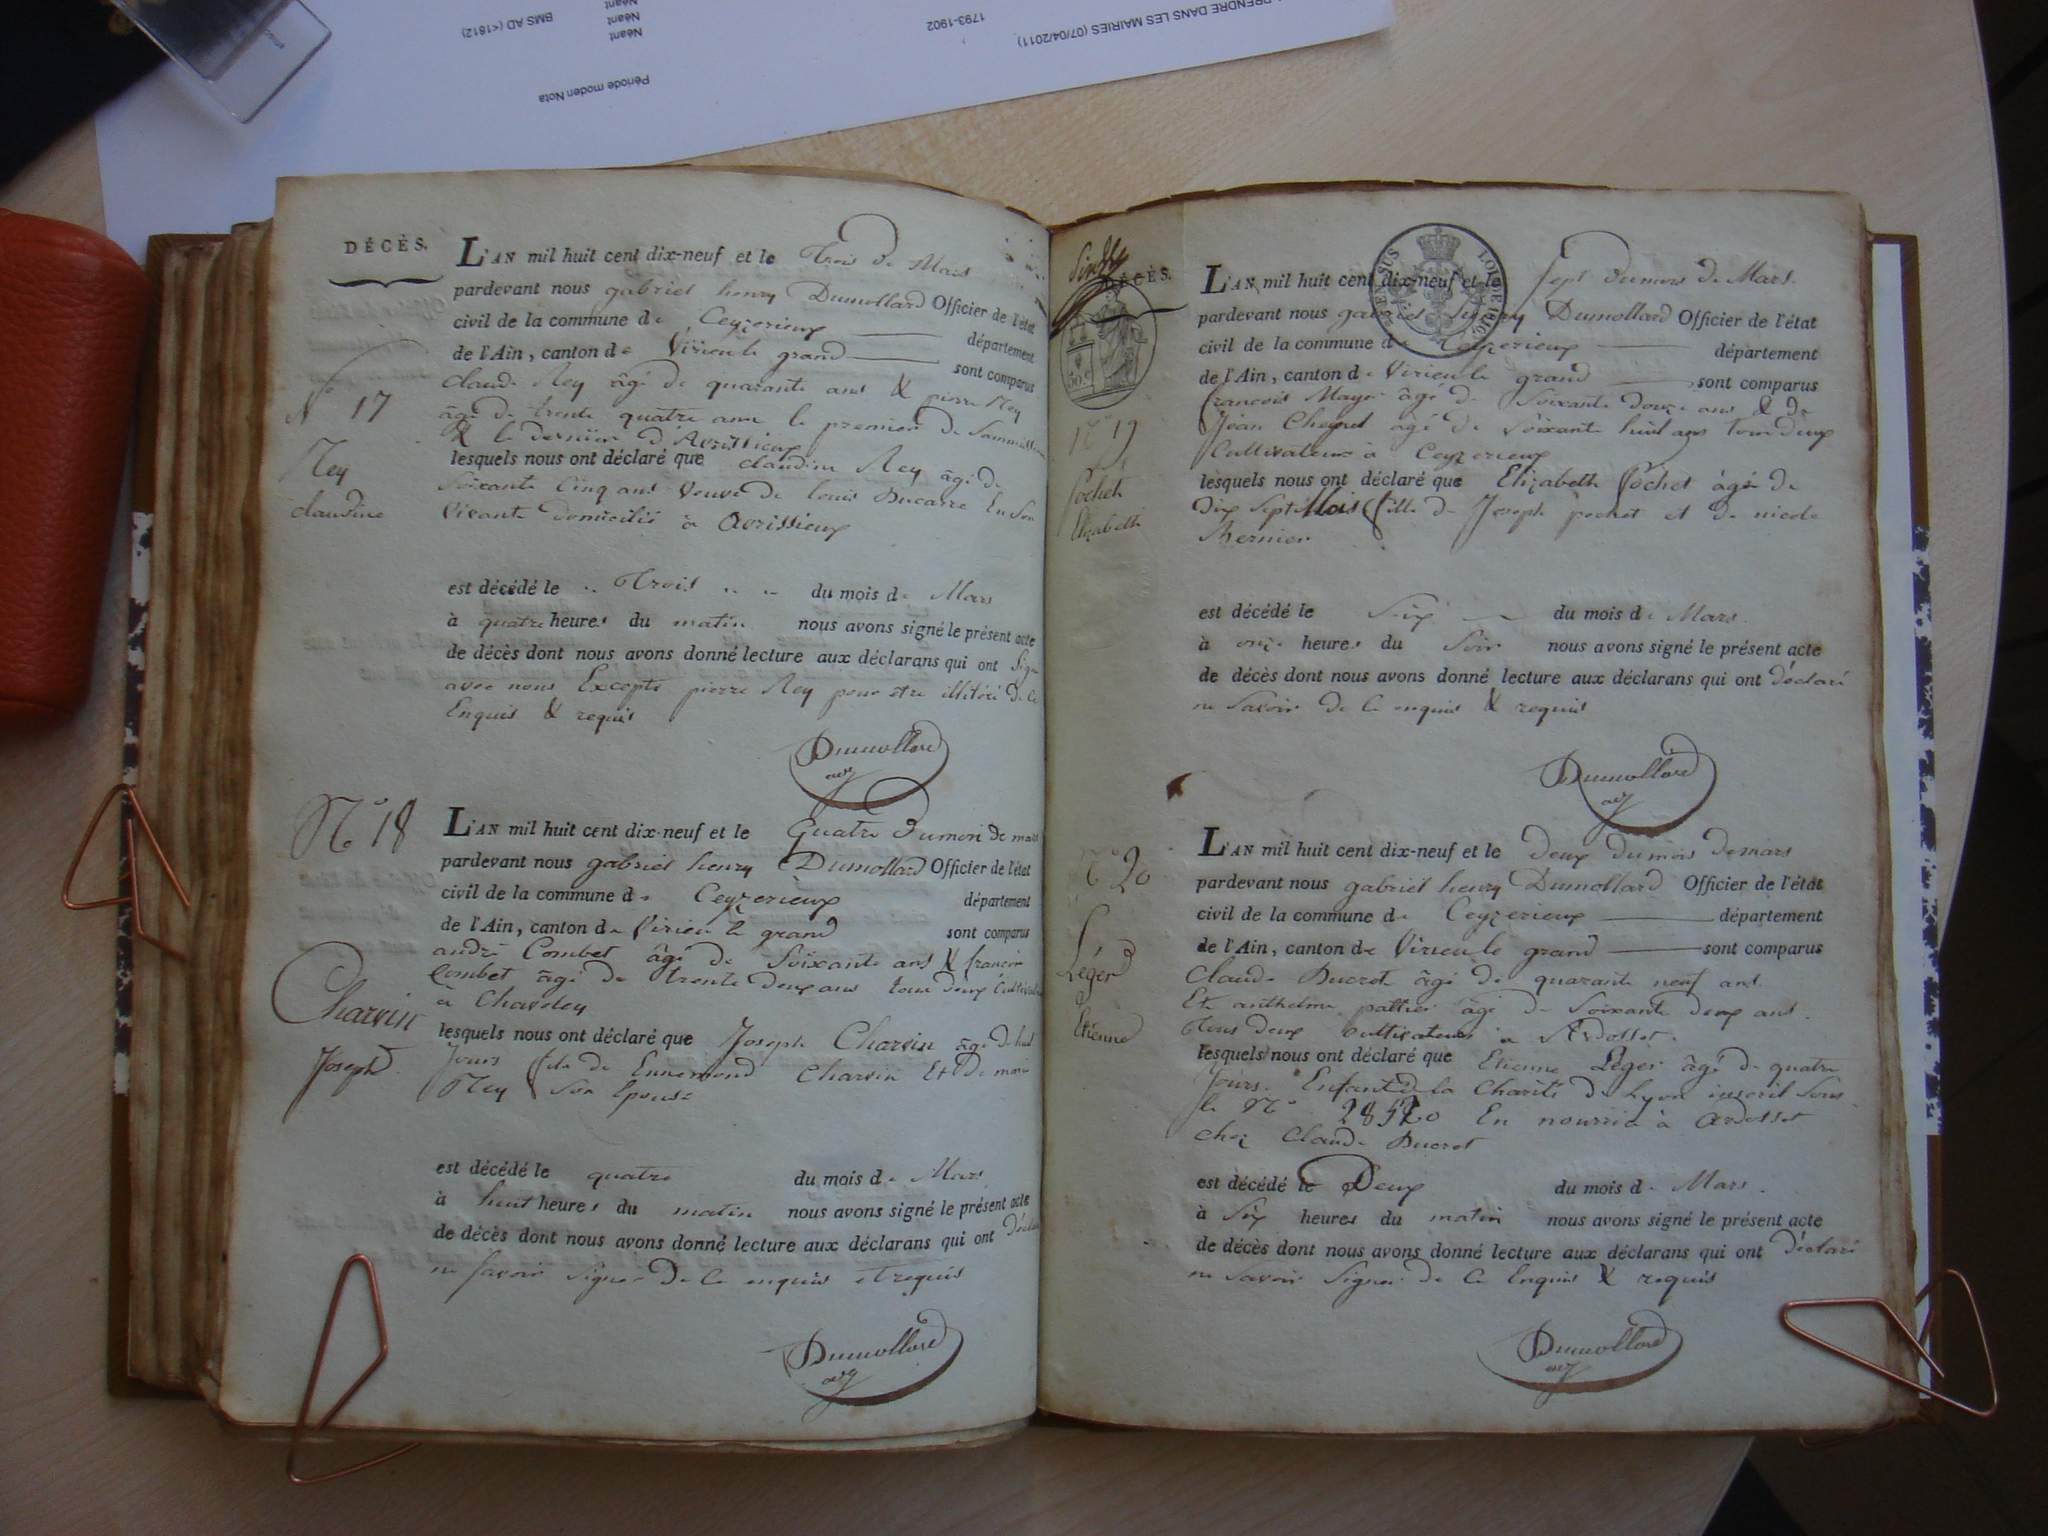 PRENDRE DANS LES MAIRIES (07/04/2011)
1793-1902
Néant
Néant
Néant
BMS AD (<1812)
Période moden Nota
DÉCÈS.
L'AN mil huit cent dix-neuf et le Trois de Mars
pardevant nous gabriel henry Dumollard Officier de l'état
civil de la commune de Ceyzerieux département
de l'Ain, canton de Virieu le grand sont comparus
claude Rey âgé de quarante ans & pierre Rey
âgé de trente quatre ans le premier de
& le dernier d'Avrissieux
lesquels nous ont déclaré que claudine Rey âgé de
Soixante Cinq ans veuve de louis Ducarre En Son
Vivante domicilié à Avrissieux
est décédé le Trois du mois de Mars
à quatre heures du matin nous avons signé le présent acte
de décès dont nous avons donné lecture aux déclarans qui ont Signé
avec nous Excepté pierre Rey pour etre illitéré de ce
Enquis & requis
Dumollard
N° 17
Rey
claudine
L'AN mil huit cent dix-neuf et le Quatre du mois de mars
pardevant nous gabriel henry Dumollard Officier de l'état
civil de la commune de Ceyzerieux département
de l'Ain, canton de Virieu le grand sont comparus
andré Combet âgé de Soixante ans & françois
Combet âgé de trente deux ans tous deux Cultivateurs
à Chavoley
lesquels nous ont déclaré que Joseph Charvin âgé de huit
Jours fils de Ennemond Charvin Et de marie
Rey Son Epouse
est décédé le quatre du mois de Mars
à huit heures du matin nous avons signé le présent acte
de décès dont nous avons donné lecture aux déclarans qui ont Déclaré
ne Savoir Signer de ce enquis et requis
Dumollard
N° 18
Charvin
Joseph
DÉCÈS.
50 c
LOUIS
L'AN mil huit cent dix-neuf et le Sept du mois de Mars
pardevant nous gabriel henry Dumollard Officier de l'état
civil de la commune de Ceyzerieux département
de l'Ain, canton de Virieu le grand sont comparus
francois Mayer âgé de Soixante douze ans & de
Jean Cheynel âgé de Soixante huit ans tous deux
Cultivateurs à Ceyzerieux
lesquels nous ont déclaré que Elizabeth Pochet âgé de
Dix Sept Mois fille de Joseph pochet et de nicole
Mernier
est décédé le Six du mois de Mars
à onze heures du Soir nous avons signé le présent acte
de décès dont nous avons donné lecture aux déclarans qui ont déclaré
ne Savoir de ce enquis & requis
Dumollard
N° 19
Pochet
Elizabeth
L'AN mil huit cent dix-neuf et le Deux du mois de mars
pardevant nous gabriel henry Dumollard Officier de l'état
civil de la commune de Ceyzerieux département
de l'Ain, canton de Virieu le grand sont comparus
Claude Ducrot âgé de quarante neuf ans
Et anthelme pattier âgé de Soixante deux ans
Tous deux cultivateurs à Ardosset
lesquels nous ont déclaré que Etienne Léger âgé de quatre
Jours Enfant de la Charité de Lyon inscrit Sous
le N° En nourrice à Ardosset
chez Claude Ducrot
est décédé le Deux du mois de Mars
à Six heures du matin nous avons signé le présent acte
de décès dont nous avons donné lecture aux déclarans qui ont Déclaré
ne Savoir Signer de ce Enquis & requis
Dumollard
N° 20
Léger
Etienne